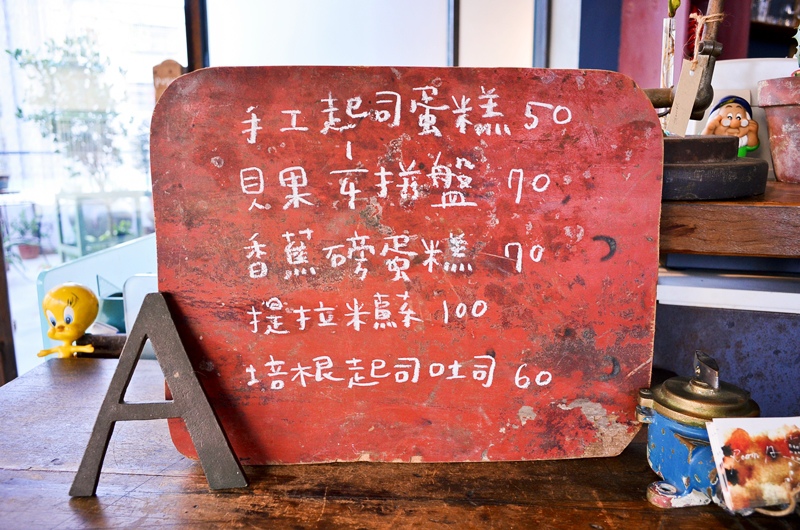 手工起司蛋糕 50
貝果 拼盤 70
香蕉磅蛋糕 70
提拉米蘇 100
培根起司吐司 60
A